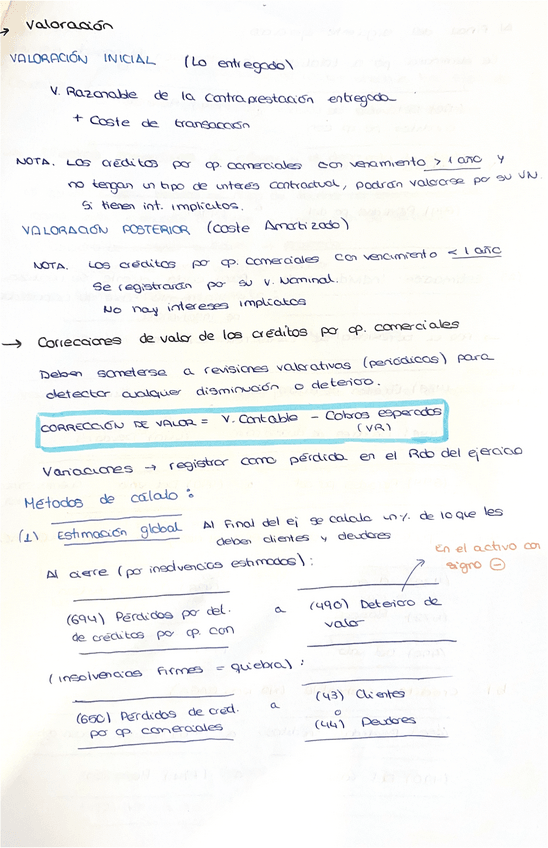 → Valoración
VALORACIÓN INICIAL (Lo entregado)
V. Razonable de la contraprestación entregada
+ Coste de transacción
NOTA. Los créditos por op. comerciales con vencimiento > 1 año y
no tengan un tipo de interés contractual, podrán valorarse por su VN.
Si tienen int. implícitos.
VALORACIÓN POSTERIOR (Coste Amortizado)
NOTA. Los créditos por op. comerciales con vencimiento < 1 año
Se registrarán por su V. Nominal.
No hay intereses implícitos
→ Correcciones de valor de los créditos por op. comerciales
Deben someterse a revisiones valorativas (periódicas) para
detectar cualquier disminución o deterioro.
CORRECCIÓN DE VALOR = V. Contable - Cobros esperados
(VR)
Variaciones → registrar como pérdida en el Rdo del ejercicio
Métodos de cálculo:
(1) Estimación global Al Final del ej se calcula un % de lo que les
deben clientes y deudores
En el activo con
signo ⊖
Al cierre (por insolvencias estimadas):
(694) Pérdidas por det. a (490) Deterioro de
de créditos por op. con valor
(insolvencias Firmes = quiebra):
(650) Pérdidas de cred. a (43) Clientes
o
por op. comerciales (44) Deudores